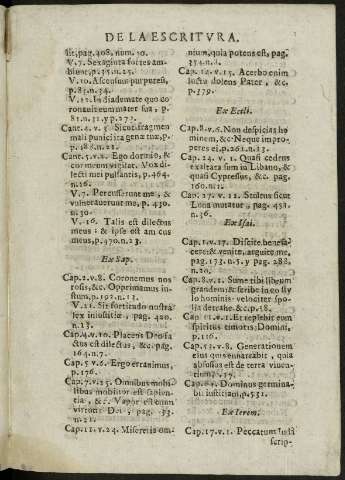 DE LA ESCRITVRA.
lit, pag. 408. num. 10.
V. 7. Sexaginta fortes am-
biunt, p. 135. n. 25.
V. 10. Ascensum purpureũ,
p. 81. n. 34.
V. 11. In diademate quo co
ronavit eum mater sua, p.
81. n. 31. y p. 273.
Cant. 4. v. 3. Sicut fragmen
mali punici ita genæ tuæ, p.
p. 188. n. 21.
Cant. 5. v. 2. Ego dormio, &
cor meum vigilat. Vox di-
lecti mei pulsantis, p. 464.
n. 16.
V. 7. Percusserunt me, &
vulneraverunt me, p. 430.
n. 30.
V. 16. Talis est dilectus
meus: & ipse est am cus
meus, p. 470. n. 23.
Ex Sap.
Cap. 2. v. 8. Coronemus nos
rosis, &c. Opprimamus iu-
stum, p. 192. n. 13.
V. 21. Sit fortitudo nostra
lex iniustitiæ, pag. 420.
n. 13.
Cap. 4. v. 10. Placens Deo fa
ctus est dilectus, &c. pag.
164. n. 7.
Cap. 5. v. 6. Ergo erravimus,
p. 176.
Cap. 7. v. 25. Omnibus mobi
libus mobilior est sapien-
tia, &c. Vapor est enim
virtutis Dei, pag. 33.
n. 21.
Cap. 11. v. 24. Misereris om-
nium, quia potens est, pag.
354. n. 1.
Cap. 14. v. 15. Acerbo enim
luctu dolens Pater, &c.
p. 379.
Ex Eccli.
Cap. 8. v. 6. Non despicias ho
minem, &c. Neque impro-
peres ei, p. 261. n. 13.
Cap. 24. v. 1. Quasi cedrus
exaltata sum in Libano, &
quasi Cypressus, &c. pag.
160. n. 1.
Cap. 27. v. 12. Stultus sicut
Luna mutatur, pag. 453.
n. 36.
Ex Isai.
Cap. 1. v. 17. Discite benefa-
cere: & venite, arguite me,
pag. 173. n. 5. y pag. 288.
n. 20.
Cap. 8. v. 1. Sume tibi librum
grandem; & scribe in eo sty
lo hominis: velociter spo-
lia detrahe. &c. p. 38.
Cap. 11. v. 1. Et replebit eum
spiritus timoris Domini,
p. 116.
Cap. 53. v. 8. Generationem
eius quis enarrabit, quia
abscissus est de terra viuen-
Dominus germina-
bit iustitiam, p. 531.
Ex Ierem.
Cap. 17. v. 1. Peccatum Iuda
scrip-